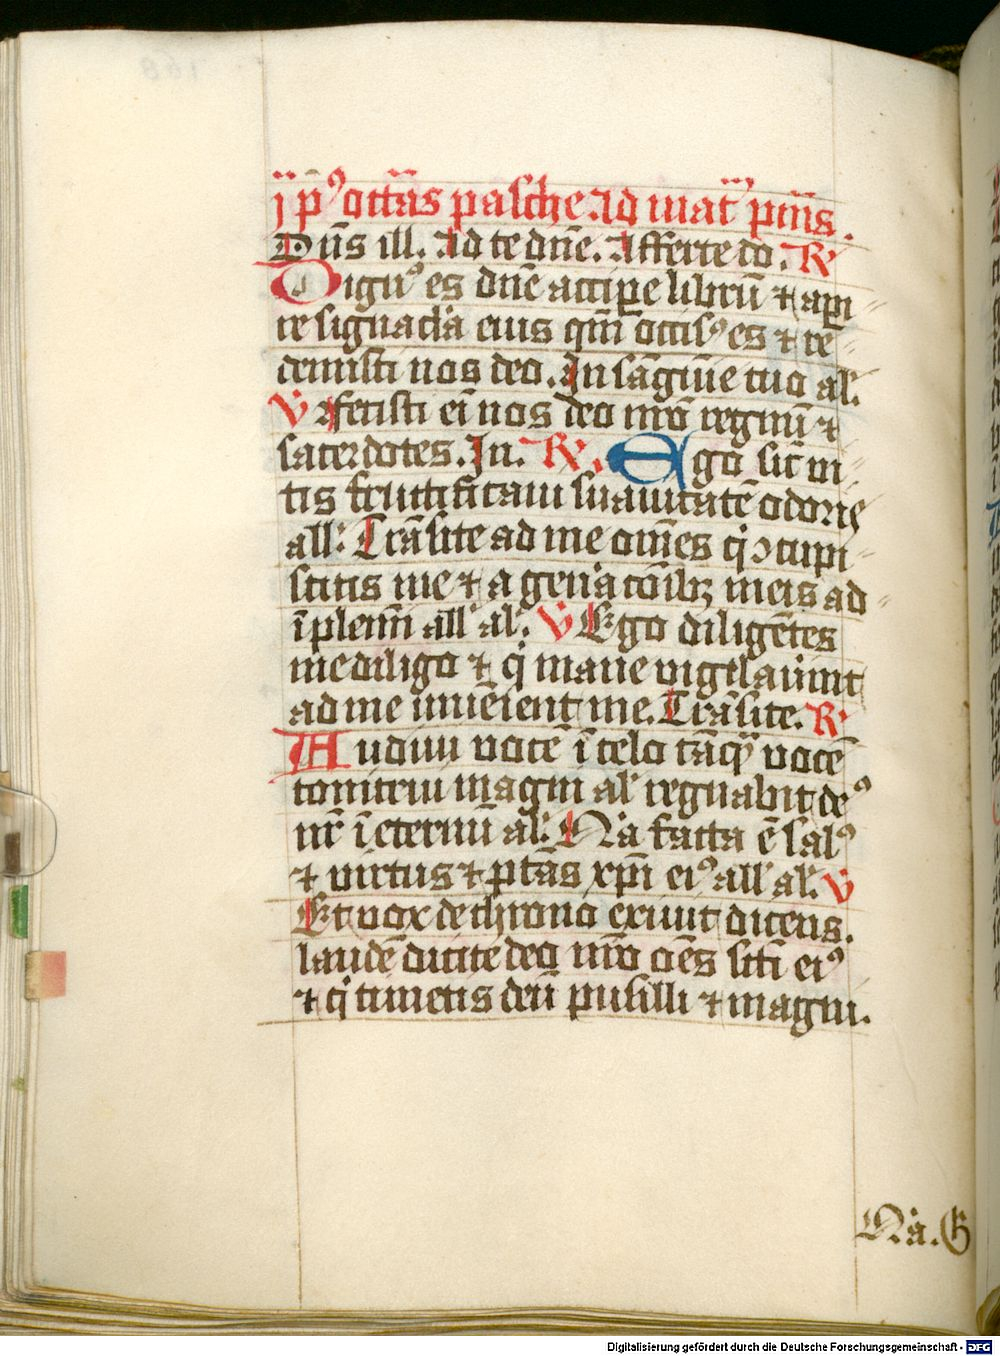 ij p⁹ octãs pasche Ad mat̃ pm̃s.
Dñs ill. Ad te dñe. Afferte do. R
Dign⁹ es dñe accipe librũ ⁊ api
re signacl'a eius qm̃ occis⁹ es ⁊ re
demisti nos deo. In sãguĩe tuo al'.
V Fecisti eĩ nos deo nr̃o regnũ ⁊
sacerdotes. In. R. Ego sic̃ vi
tis fructificaui suauitatẽ odoris
all'. Trãsite ad me om̃es q ↄcupi
scitis me ⁊ a gen'acõibꝫ meis ad
ĩplem̃ all' al'. V Ego diligẽtes
me diligo ⁊ q mane vigilauint
ad me inueĩent me. Trãsite. R
Audiui vocẽ ĩ celo tãq̃ vocẽ
tonitrui magni al' regnabit de⁹
nr̃ ĩ eternũ al'. Na facta ẽ sal⁹
⁊ virtus ⁊ p̃tãs xp̃i ei⁹ all' al'. V
Et vox de throno exiuit dicens.
laudẽ dicite deo nr̃o oẽs scĩ ei⁹
⁊ q timetis deũ pusilli ⁊ magni.
Na. G
Digitalisierung gefördert durch die Deutsche Forschungsgemeinschaft - DFG